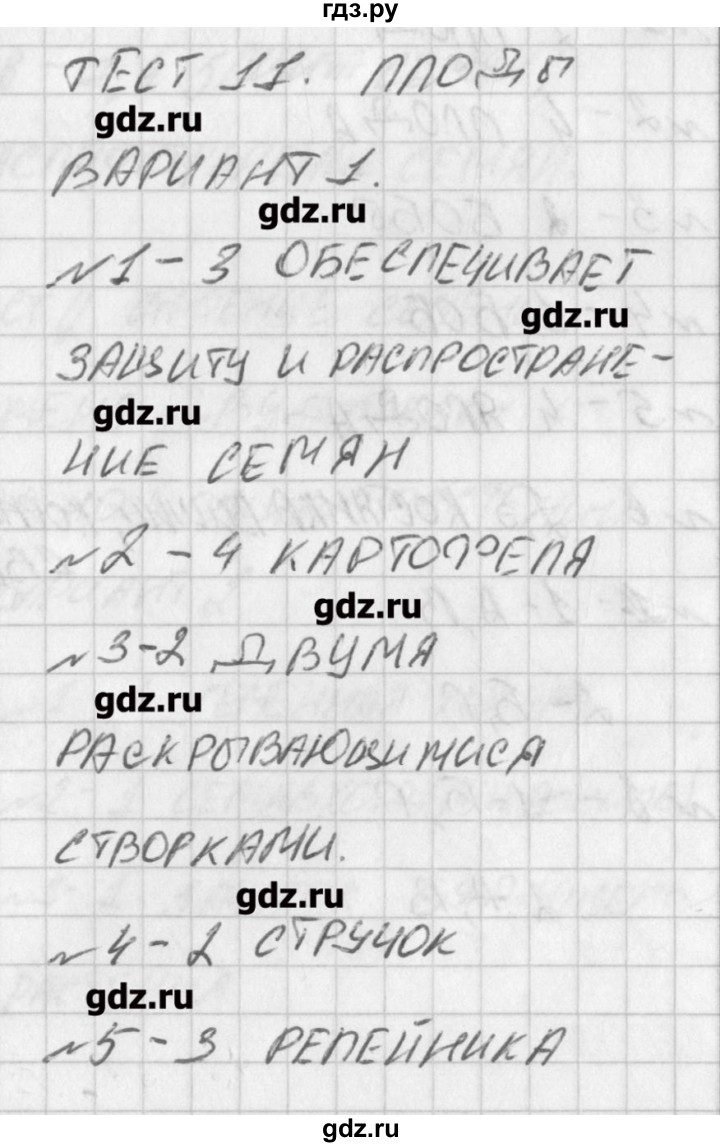 гдз.ру
ТЕСТ 11. ПЛОДЫ
gdz.ru
ВАРИАНТ 1.
gdz.ru
№1 - 3 ОБЕСПЕЧИВАЕТ
gdz.ru
ЗАЩИТУ И РАСПРОСТРАНЕ-
gdz.ru
НИЕ СЕМЯН
№2 - 4 КАРТОФЕЛЯ
gdz.ru
№3-2 ДВУМЯ
gdz.ru
РАСКРЫВАЮЩИМИСЯ
СТВОРКАМИ.
gdz.ru
№4 - 2 СТРУЧОК
gdz.ru
№5 - 3 РЕПЕЙНИКА
gdz.ru